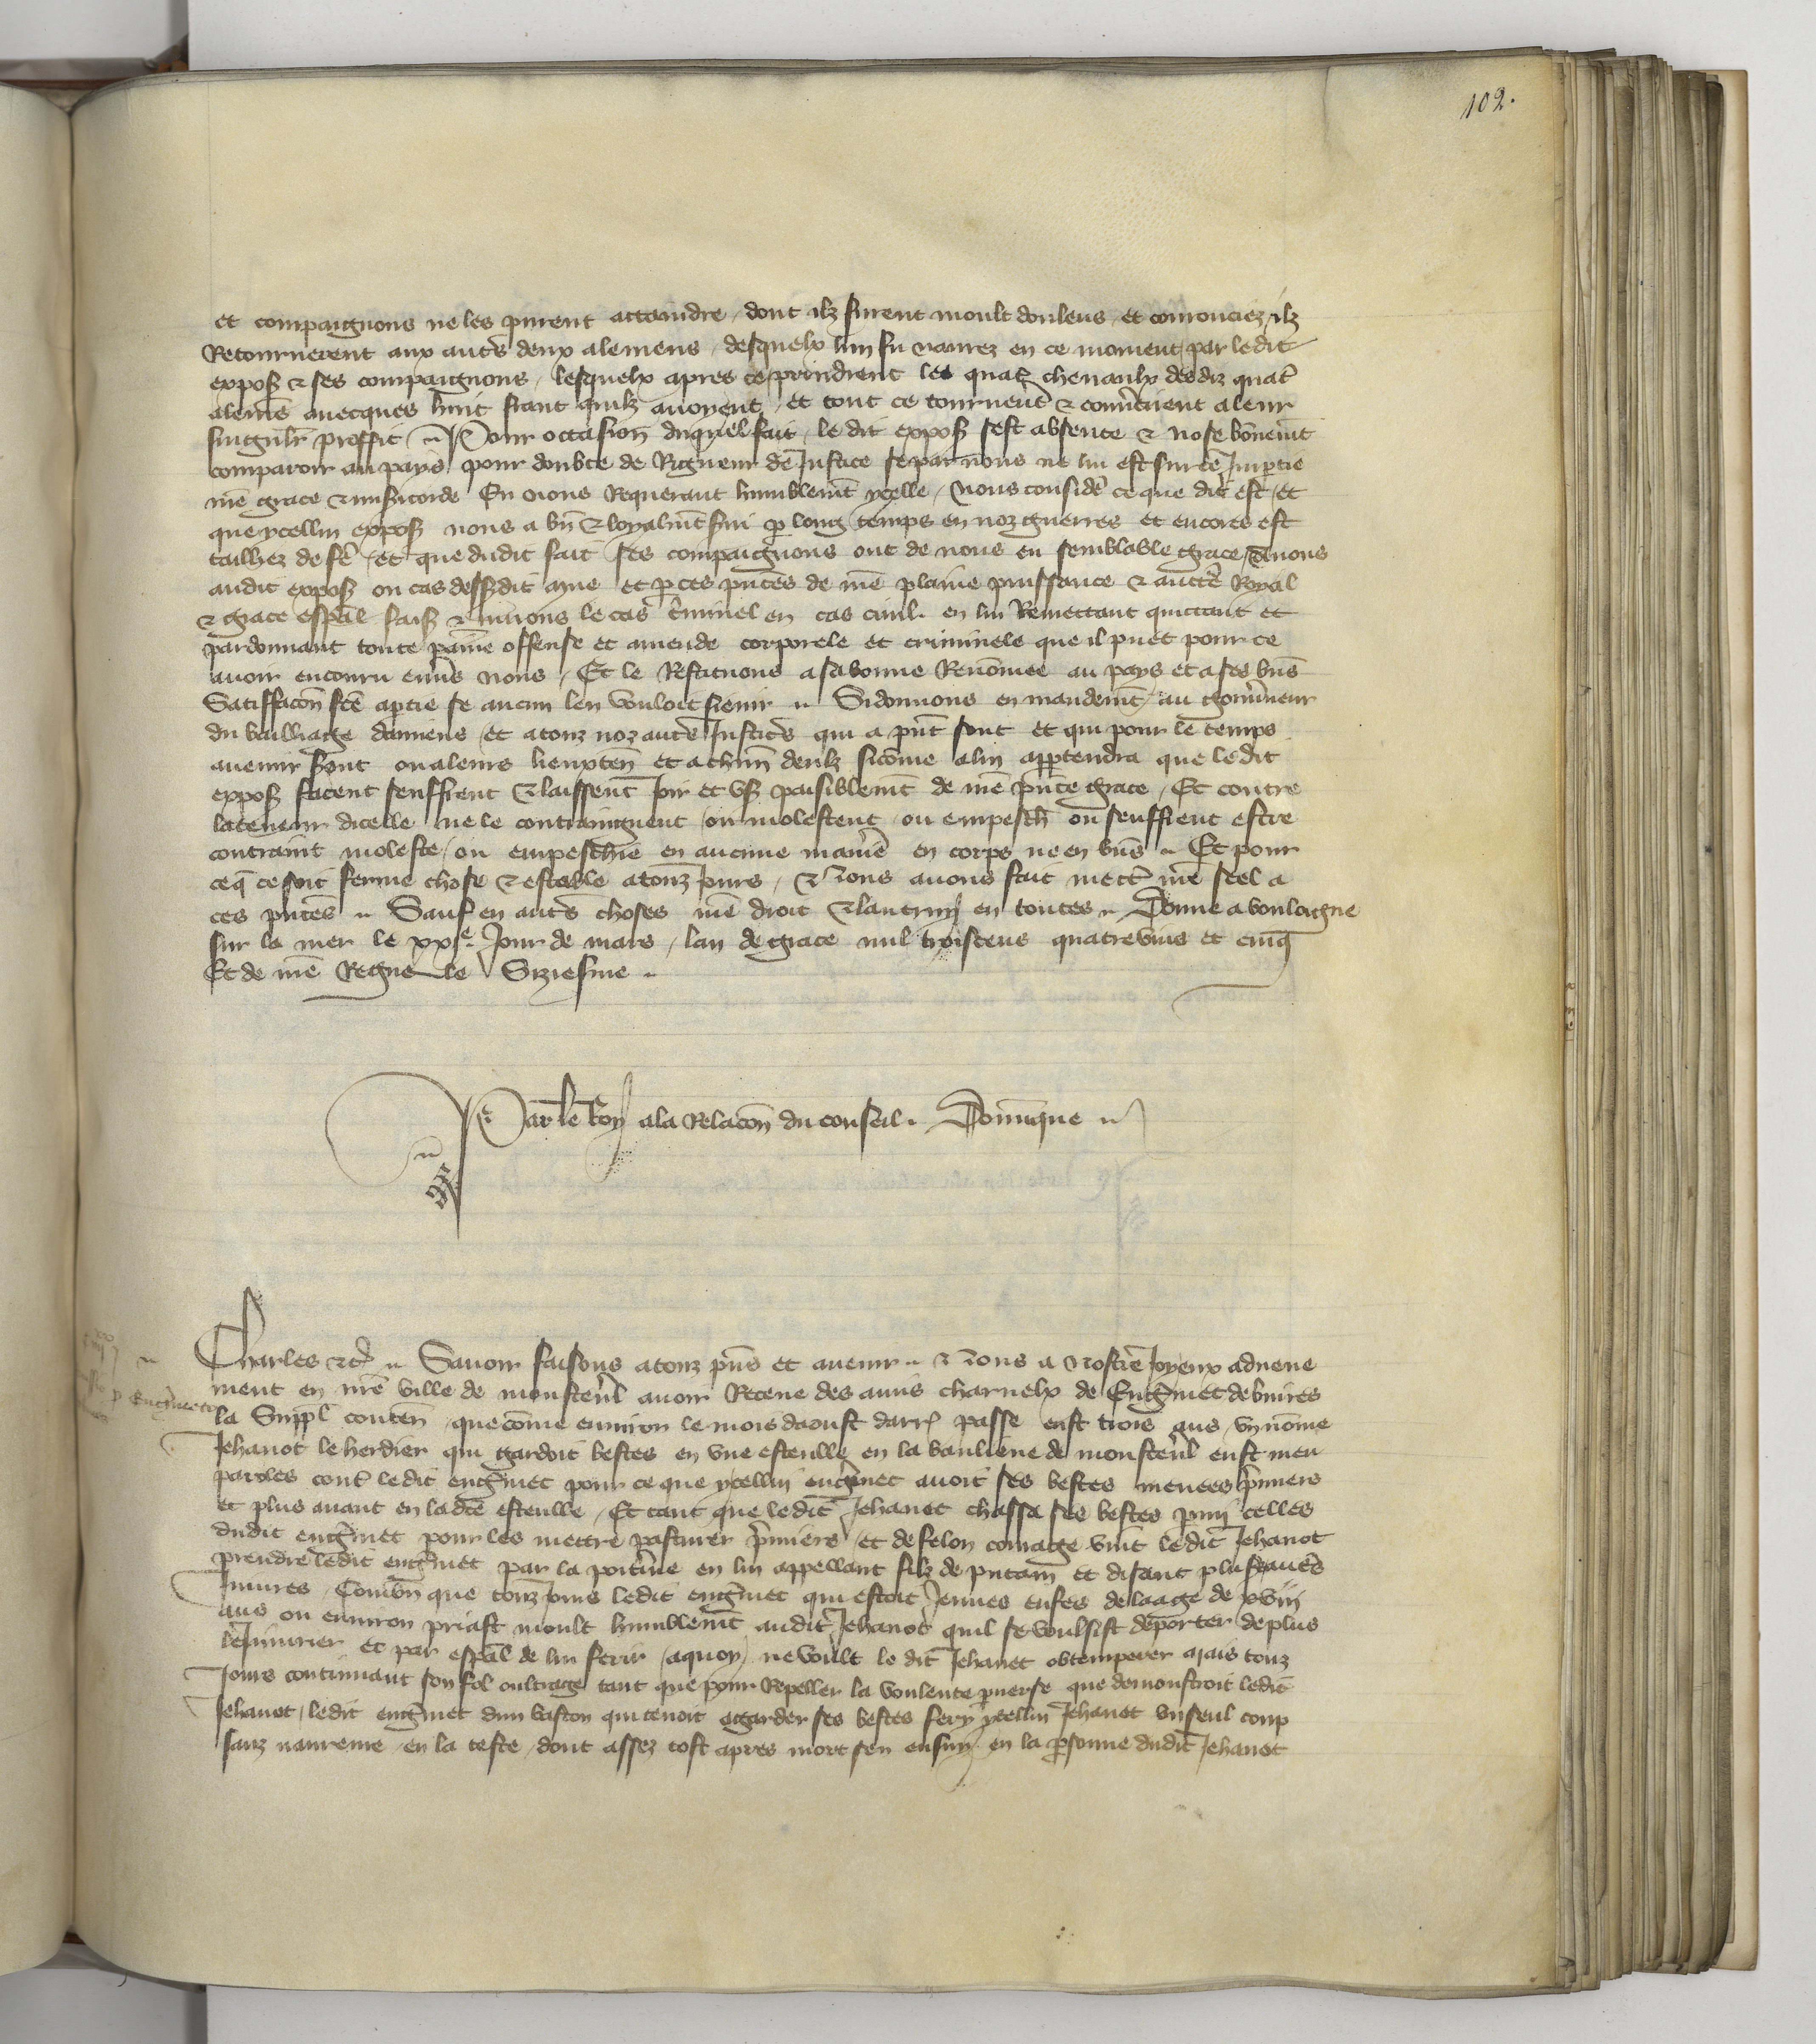 102.
et compaignons ne les purent attaindre, dont ilz furent moult douleus, et courouciez, ilz
Retournerent aux autrs deux alemens, desquelx lun fu naurez en ce moment par le dit
expos & ses compaignons, lesquelx apres ce prindrent les quatr cheuaulx desdiz quatr
alems auecques huit frans quilz auoyent, et tout ce tournerent & conutirent a leur
singulr proffit Pour occasion duquel fait, le dit expos sest absente & nose bonemt
comparoir au pays pour doubte de Rigueur de Justice se par nous ne lui est sur ce Impartie
nre grace & misicorde En nous Requerant humblemt ycelle, Nous consider ce que dit est, et
que ycellui expos nous a bn & loyalmt serui p long temps en noz guerres et encores est
tailliez de fe, et que dudit fait ses compaignons ont de nous eu semblable grace, A nous
audit expos ou cas dessusdit auons et p ces pntes de nre plaine puissance & auctte Royal
& grace espal faiz & muons le cas criminel en cas ciuil. en lui Remettant quittant et
pardonnant toute paine offense et amende corporele et criminele que il puet pour ce
auoir encouru enuers nous, Et le Restituons a sa bonne Renomee au pays et a ses bns
Satiffacon fce a partie se aucun len vouloit suir Si donnons en mandemt au gouuneur
du bailliage damiens et a touz noz autrs Justicrs qui a pnt sont et qui pour le temps
auenir sront ou a leurs lieuxten et a chun deulz sicome a lui appartendra que le dit
expos facent seuffrent & laissent joir et vs paisiblemt de nre pnte grace, Et contre
la teneur dicelle ne le contraingnent ou molestent ou empesch ou seuffrent estre
contraint moleste ou empeschie en aucune maniere en corps ne en bns Et pour
ceq ce soit ferme chose & estable a touz jours, Nous auons fait mettr nre seel a
ces pntes Sauf en autrs choses nre droit & lautruy en toutes Donne a bouloigne
sur la mer le xxje Jour de mars, lan de grace mil troiscens quatrevins et cinq
Et de nre Regne le Siziesme
Par le Roy a la Relacon du conseil. Dominique
Charles &c Sauoir faisons a touz pns et auenir Nous a nostre Joyeux aduene
ment en nre ville de monsterul auoir Receue des amis charnelx de Engrmet de buires
la Suppl conten que come enuiron le mois daoust darr passe eust trois ans, vn nomme
Jehanot le herdier qui gardoit bestes en vne esteulle en la banlieue de monsterul eust meu
paroles contr ledit engrmet pour ce que ycellui engrmet auoit ses bestes menees primiers
et plus auant en ladte esteulle, Et tant que ledit Jehanot chassa ses bestes parmi celles
dudit engrmet pour les mettre pasturer primiers, et de felon courage vint ledit Jehanot
prendre ledit engrmet par la poitrine en lui appellant filz de putain et disant plusrs autrs
Iniures, Combn que touz jours ledit engrmet qui estoit Jeunes enfes de laage de xviij
ans ou enuiron priast moult humblemt audit Jehanot quil se voulsist deporter de plus
le Iniurier et par espal de lui ferir, aquoy ne voult le dit Jehanot obtemperer Mais touz
Jours continuant son fol oultrage tant que pour Repeller la voulente puerse que demonstroit ledit
Jehanot, ledit engrmet dun baston qui tenoit a garder ses bestes fery ycellui Jehanot vn seul coup
sanz naureure en la teste, dont assez tost apres mort sen ensuy en la psonne dudit Jehanot